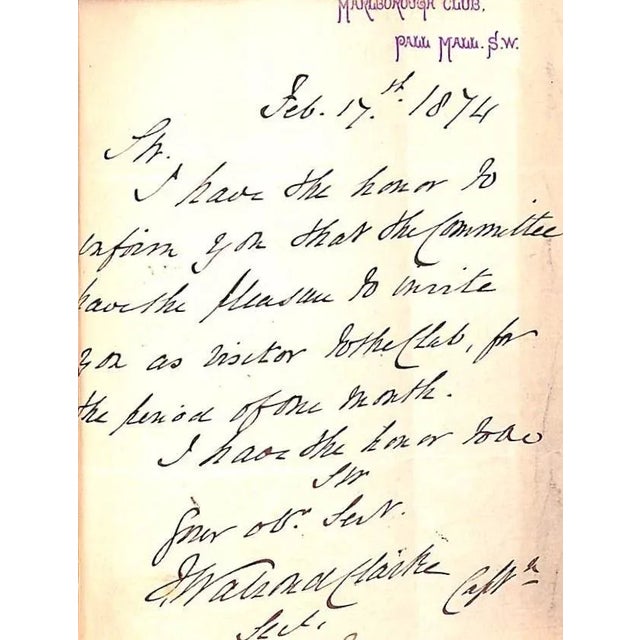 MARLBOROUGH CLUB,
PALL MALL. S.W.
Feb. 17.st 1874
Sir.
I have the honor to
inform you that the Committee
have the pleasure to invite
you as visitor to the Club, for
the period of one month.
I have the honor to be
Sir
Your obt. Servt.
Clarke Captn
Sect.